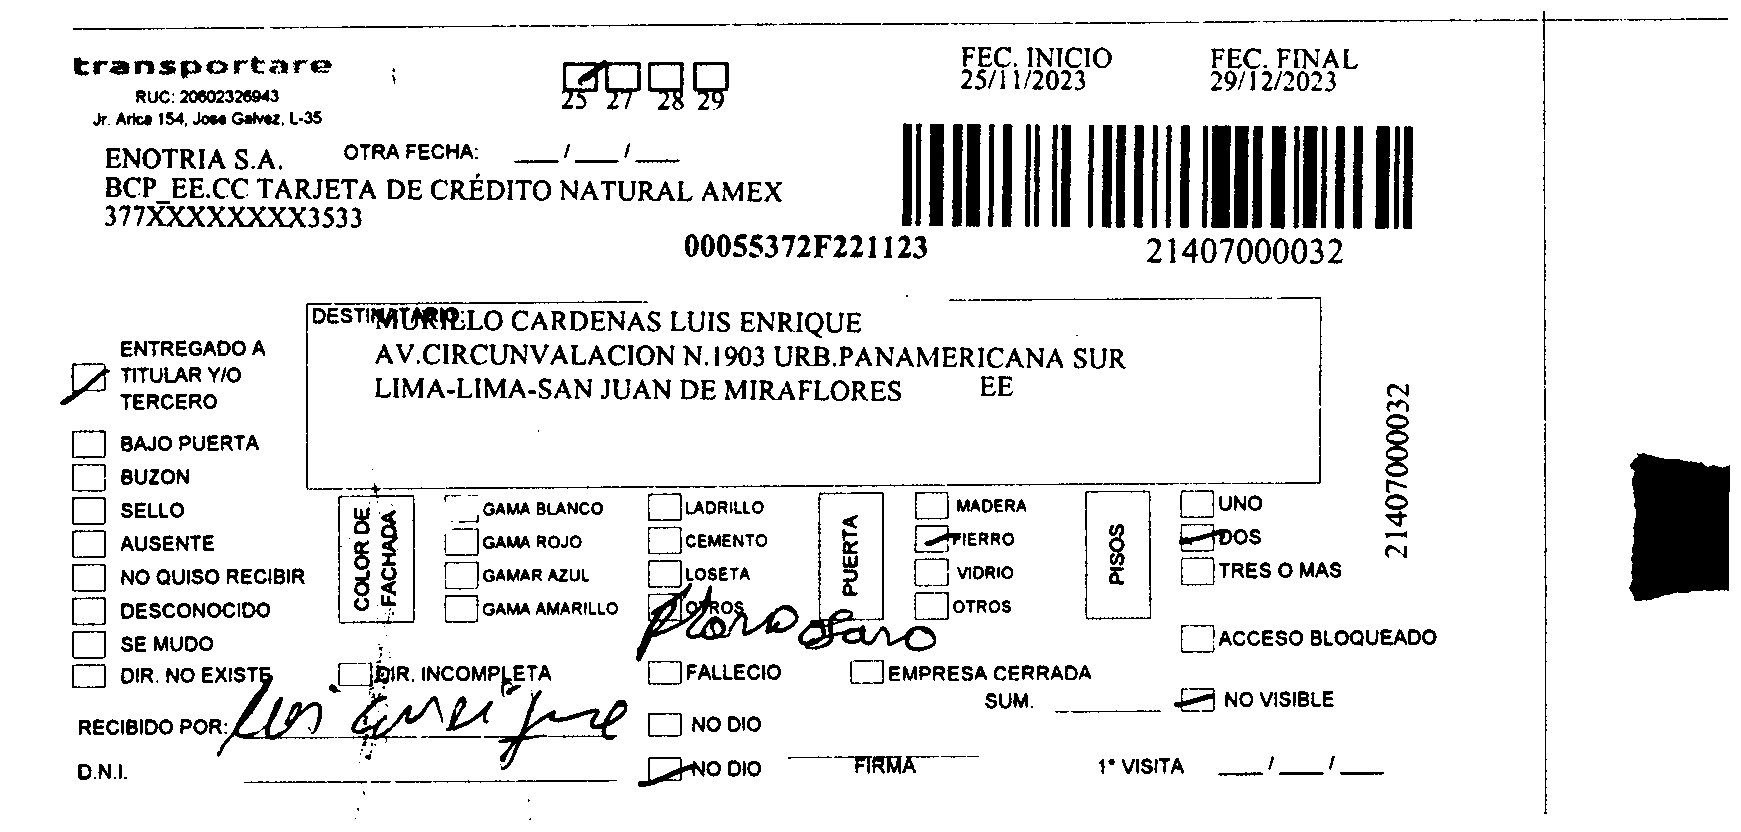 transportare
RUC: 20602326943
Jr. Arica 154, Jose Galvez, L-35
25 27 28 29
FEC. INICIO
25/11/2023
FEC. FINAL
29/12/2023
OTRA FECHA: ___/___/___
ENOTRIA S.A.
BCP_EE.CC TARJETA DE CRÉDITO NATURAL AMEX
377XXXXXXXXX3533
00055372F221123
21407000032
DESTINATARIO:
MURILLO CARDENAS LUIS ENRIQUE
AV.CIRCUNVALACION N.1903 URB.PANAMERICANA SUR
LIMA-LIMA-SAN JUAN DE MIRAFLORES EE
21407000032
ENTREGADO A
TITULAR Y/O
TERCERO
BAJO PUERTA
BUZON
SELLO
AUSENTE
NO QUISO RECIBIR
DESCONOCIDO
SE MUDO
DIR. NO EXISTE
COLOR DE
FACHADA
GAMA BLANCO
GAMA ROJO
GAMAR AZUL
GAMA AMARILLO
LADRILLO
CEMENTO
LOSETA
OTROS
PUERTA
MADERA
FIERRO
VIDRIO
OTROS
PISOS
UNO
DOS
TRES O MAS
ACCESO BLOQUEADO
DIR. INCOMPLETA
FALLECIO
EMPRESA CERRADA
SUM. ________
NO VISIBLE
RECIBIDO POR:
NO DIO
D.N.I.
NO DIO
FIRMA
1° VISITA ___/___/___